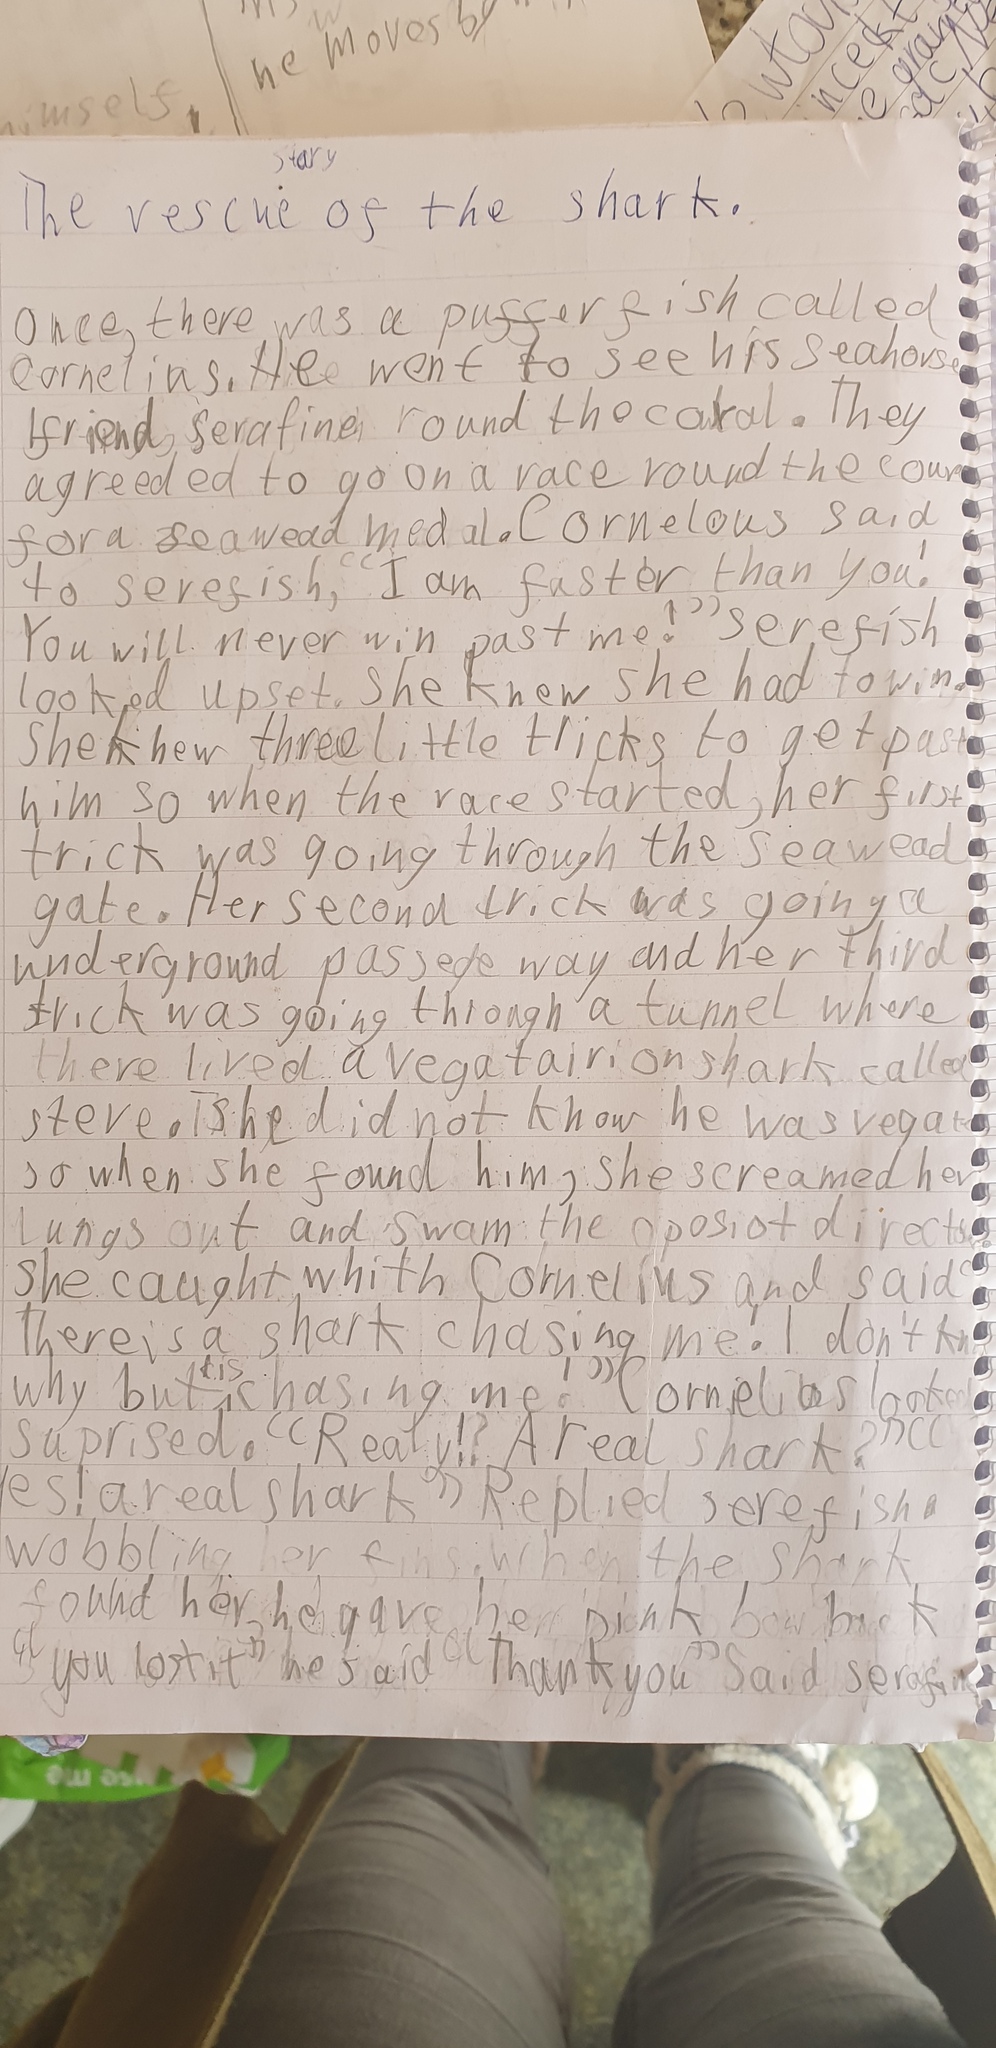 he moves by
himself.
story
The rescue of the shark.
Once, there was a pufferfish called
Cornelius. He went to see his seahorse
friend, serafine, round the coral. They
agreeded to go on a race round the cour
for a seawead medal. Cornelous said
to serefish, "I am faster than you!
You will never win past me!" serefish
looked upset. She knew she had to win.
She knew three little tricks to get past
him so when the race started, her first
trick was going through the seawead
gate. Her second trick was going a
underground passege way and her third
trick was going through a tunnel where
there lived a vegatairion shark called
steve. She did not know he was vegat
so when she found him, she screamed her
lungs out and swam the oposiot directo
She caught whith Cornelius and said "
there is a shark chasing me! I don't kn
why but it is chasing me!" Cornelius looked
suprised. "Realy!? A real shark?" "
Yes! a real shark" Replied serefish
wobbling her fins. When the shark
found her, he gave her pink bow back
"you lost it" he said "Thank you" Said serafine